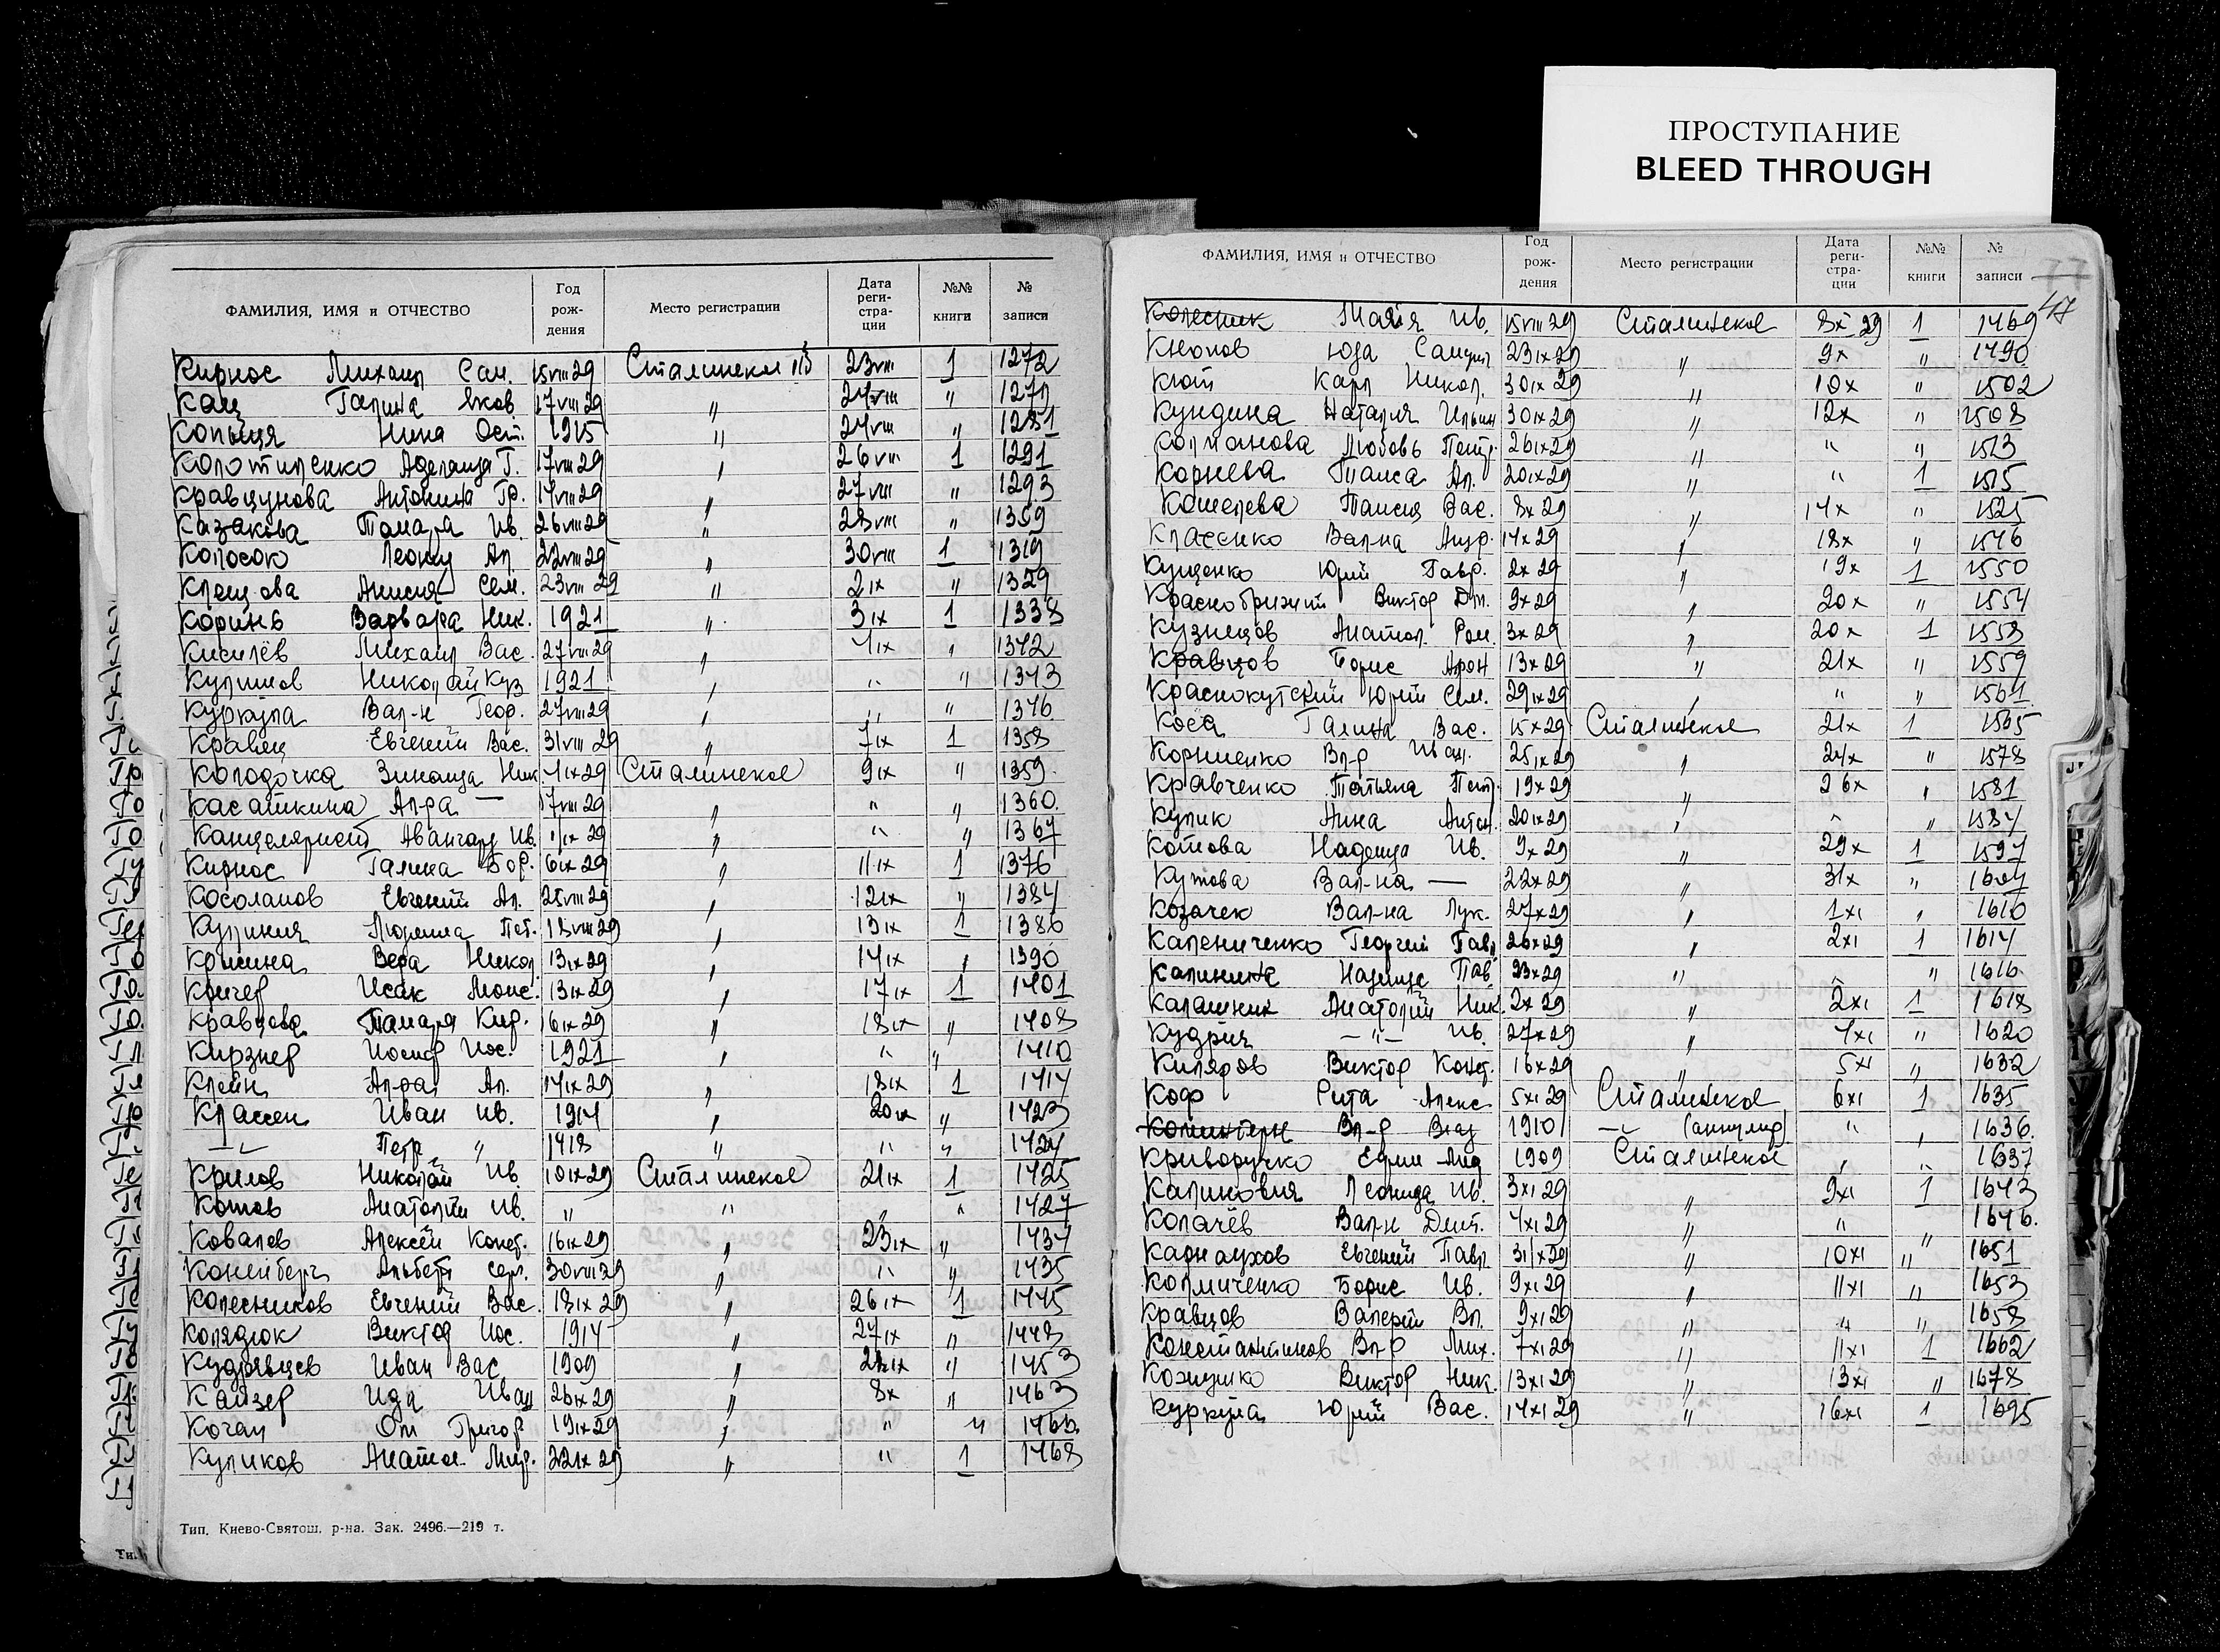 ПРОСТУПАНИЕ
BLEED THROUGH
ФАМИЛИЯ, ИМЯ и ОТЧЕСТВО Год рождения Место регистрации Дата регистрации №№ книги № записи
Кирнос Михаил Сам. 15 VIII 29 Сталинский 23 VIII 1 1272
Кац Галина Яков. 17 VIII 29 " 24 VIII "
Копыця Нина Ост. 1915 " 24 VIII " 1281
Колотиленко Аделаида Г. 17 VIII 29 " 26 VIII 1 1291
Кравцунова Антонина Гр. 17 VIII 29 " 27 VIII " 1293
Казакова Тамара Ив. 26 VIII 29 " 28 VIII " 1359
Колосок Леонид Ал. 22 VIII 29 " 30 VIII 1 1319
Клещова Анисия Сем. 23 VIII 29 " 2 IX " 1329
Коринь Варвара Ник. 1921 " 3 IX 1 1338
Киселёв Михаил Вас. 27 VIII 29 " 4 IX " 1342
Кулишов Николай Куз 1921 " " " 1343
Куркула Вал-н Геор. 27 VIII 29 " " " 1346
Кравец Евгений Вас. 31 VIII 29 " 7 IX 1 1358
Колодочка Зинаида Ник 4 IX 29 Сталинское 9 IX " 1359.
Касаткина Ал-ра — 17 VIII 29 " " " 1360.
Канцелярист Авангард Ив. 1 IX 29 " " " 1367
Кирнос Галина Бор. 6 IX 29 " 11 IX 1 1376
Косолапов Евгений Ал. 25 VIII 29 " 12 IX " 1384
Кулиния Людмила Пет. 18 VIII 29 " 13 IX 1 1386
Кришина Вера Никол 13 IX 29 " 14 IX " 1390
Кричер Исак Моис. 13 IX 29 " 17 IX 1 1401
Кравцова Тамара Кир. 16 IX 29 " 18 IX " 1408
Кирзнер Иосиф Иос. 1921 " " " 1410
Клейн Ал-ра Ал. 14 IX 29 " 18 IX 1 1414
Классен Иван Ив. 1914 " 20 IX " 1423
—"— Петр " 1918 " " " 1424
Крилов Николай Ив. 10 IX 29 Сталинское 21 IX 1 1425
Котов Анатолий Ив. " " " " 1427
Ковалев Алексей Конст. 16 IX 29 " 23 IX " 1434
Конейберг Альберт Серг. 30 VIII 29 " " " 1435
Колесников Евгений Вас. 18 IX 29 " 26 IX 1 1445
Колядюк Виктор Иос. 1914 " 27 IX " 1448
Кудрявцев Иван Вас 1909 " IX " 1453
Кайзер Ида Иван 26 IX 29 " 8 X " 1463
Кочан От Григор 19 IX 29 " " " 1466
Куликов Анатол. 22 IX 29 " " 1 1468
Тип. Киево-Святош. р-на. Зак. 2496.—219 т.
ФАМИЛИЯ, ИМЯ и ОТЧЕСТВО Год рождения Место регистрации Дата регистрации №№ книги № записи
47
Колесник Майя Ив. 15 VIII 29 Сталинское 8 X 29 1 1469
Кнопов Юда 23 IX 29 " 9 X " 1490
Кют Карл Никол. 30 IX 29 " 10 X " 1502
Кундина Наталия Ильин 30 IX 29 " 12 X " 1508
Колпанова Любовь Петр. 26 IX 29 " " " 1513
Корнева Таиса Ал. 20 IX 29 " " 1 1515
Кошелева Таисия Вас. 8 X 29 " 14 X " 1525
Классико Вал-на Андр. 14 X 29 " 18 X " 1546
Кущенко Юрий Гавр. 2 X 29 " 19 X 1 1550
Краснобрижий Виктор Дм. 9 X 29 " 20 X " 1554
Кузнецов Анатол. Ром. 3 X 29 " 20 X 1 1558
Кравцов Борис Арон 13 X 29 " 21 X " 1559
Краснокутский Юрий Сем. 29 IX 29 " " " 1561
Коса Галина Вас. 15 X 29 Сталинское 21 X 1 1565
Корниенко Вл-р Иван. 25 IX 29 " 24 X " 1578
Кравченко Татьяна Петр. 19 X 29 " 26 X " 1581
Кулик Анна Антон. 20 IX 29 " " " 1584
Котова Надежда Ив. 9 X 29 " 29 X 1 1597
Кутова Вал-на — 22 X 29 " 31 X " 1604
Козачек Вал-на Лук. 27 X 29 " 1 XI " 1610
Калениченко Георгий Гавр 26 X 29 " 2 XI 1 1614
Калинина Надежда Пав. 23 X 29 " " " 1616
Калашник Анатолий Ник. 2 X 29 " 2 XI 1 1618
Кудрия —"— Ив. 27 X 29 " 4 XI " 1620
Киляров Виктор Конст. 16 X 29 " 5 XI " 1632
Коф Рита Алекс 5 XI 29 Сталинское 6 XI 1 1635
Коминтерн Вл-р Влад 1910 — (аннулир) " " 1636.
Криворучко Ефим Анд 1909 Сталинское " " 1637
Калиновия Леонида Ив. 3 XI 29 " 9 XI 1 1643
Колачёв Вал-н Дмит. 4 XI 29 " " " 1646.
Карнаухов Евгений Павл 31 X 29 " 10 XI " 1651
Колмиченко Борис Ив. 9 XI 29 " 11 XI " 1653
Кравцов Валерий Вл. 9 XI 29 " " " 1658
Константинов Вл-р Мих. 7 XI 29 " 11 XI 1 1662
Кожушко Виктор Ник. 13 XI 29 " 13 XI " 1678
Куркула Юрий Вас. 14 XI 29 " 16 XI 1 1695